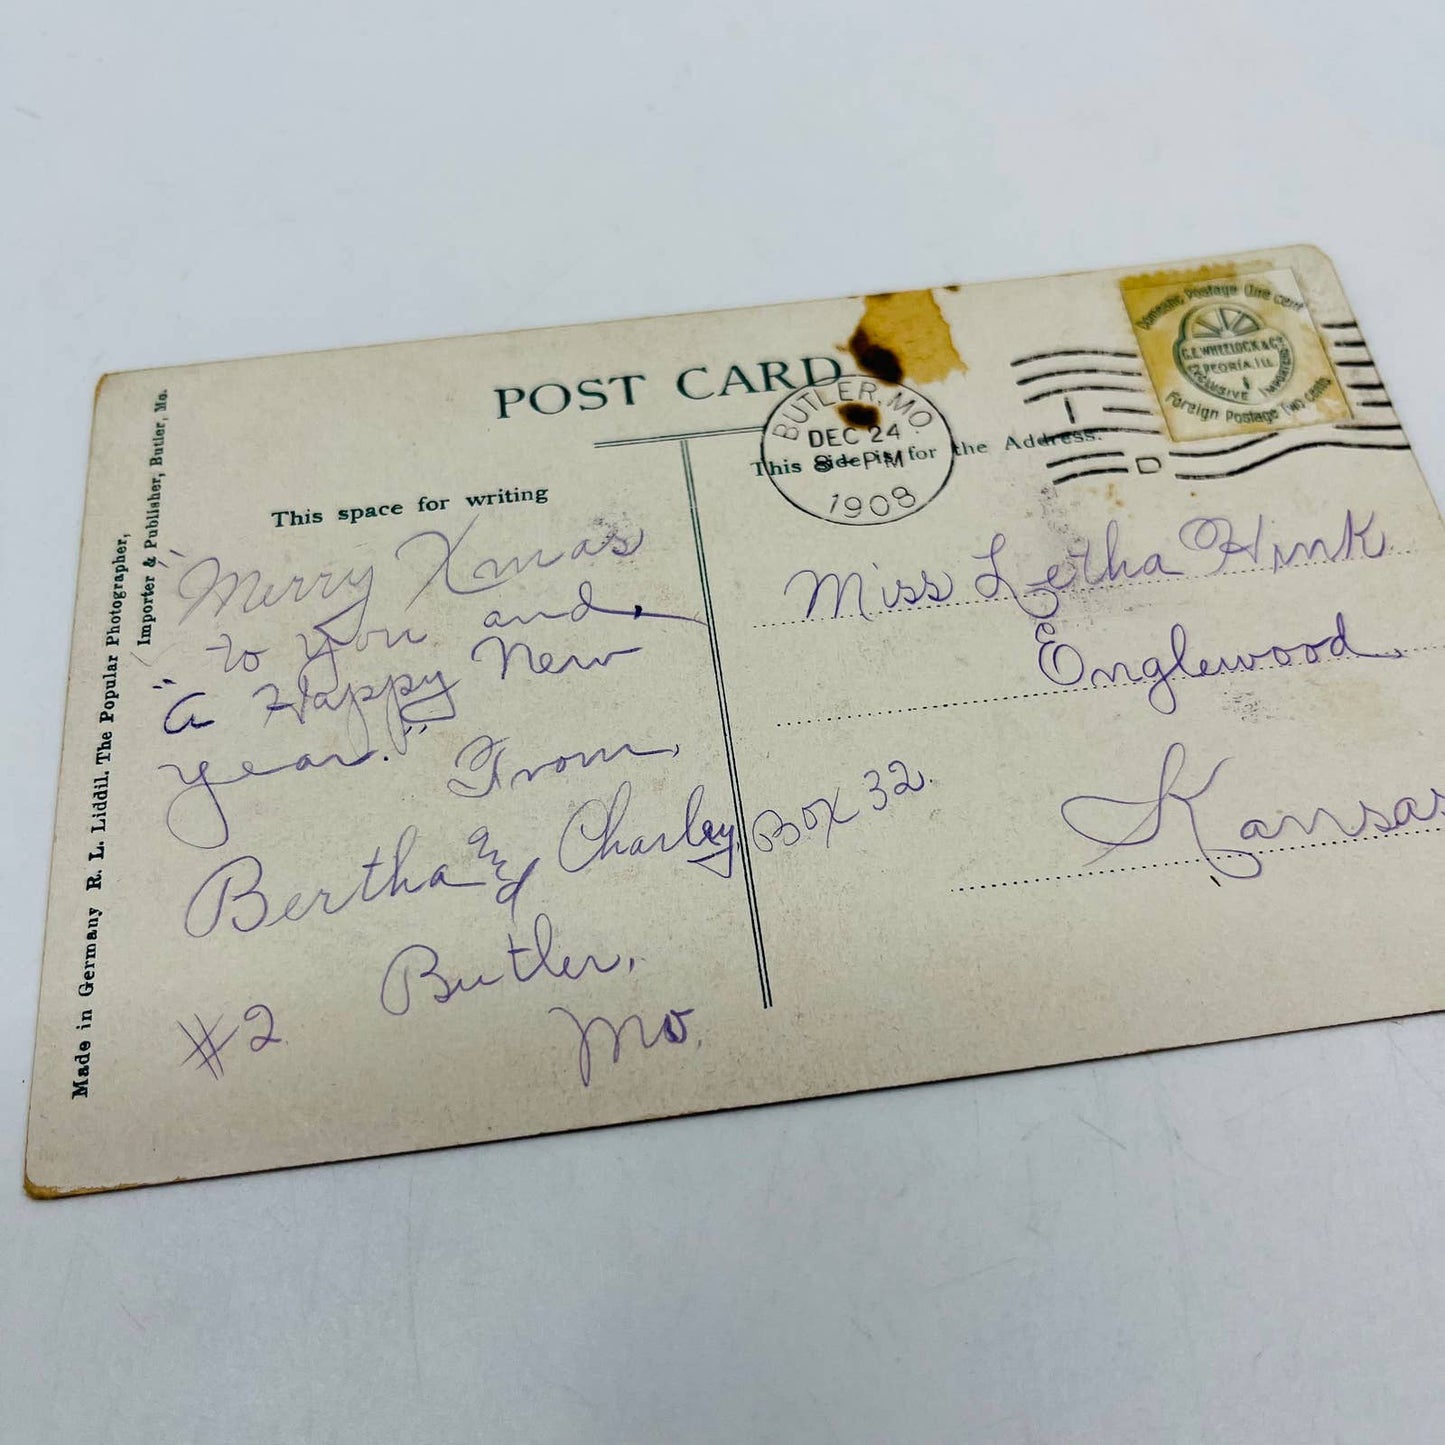 POST CARD
This space for writing
"Merry Xmas
to you and,
"a Happy New
year."
From,
Bertha and Charley, Box 32.
Butler,
Mo.
#2
Made in Germany R. L. Liddil. The Popular Photographer,
Importer & Publisher, Butler, Mo.
BUTLER, MO.
DEC 24
8-PM
1908
This side is for the Address.
Domestic Postage One cent
C.E. WHEELOCK & Co
PEORIA. ILL
EXCLUSIVE IMPORTERS
Foreign Postage Two cents
Miss Letha Hink
Englewood,
Kansas